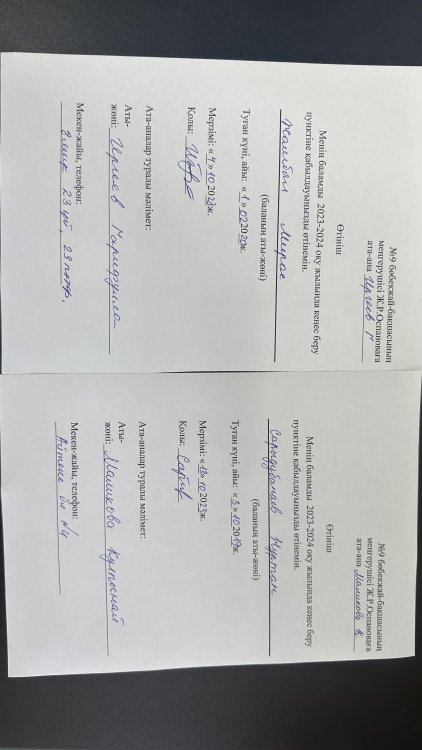 №9 бөбекжай-бақшасының
меңгерушісі Ж.Р.Оспановаға
ата-ана
Өтініш
Менің баламды 2023-2024 оқу жылында кеңес беру
пунктіне қабылдауыңызды өтінемін.
Жанибол Мирас
(баланың аты-жөні)
Туған күні, айы: «1» 02 2020ж.
Мерзімі: «4» 10 2023ж.
Қолы:
Ата-аналар туралы мәлімет:
Аты-
жөні:
Мекен-жайы, телефон:
23 үй, 23 пәтер,
№9 бөбекжай-бақшасының
меңгерушісі Ж.Р.Оспановаға
ата-ана Маликова К
Өтініш
Менің баламды 2023-2024 оқу жылында кеңес беру
пунктіне қабылдауыңызды өтінемін.
Нұртан
(баланың аты-жөні)
Туған күні, айы: «3» 10 2019ж.
Мерзімі: «18» 10 2023ж.
Қолы:
Ата-аналар туралы мәлімет:
Аты-
жөні: Маликова
Мекен-жайы, телефон:
Әйтеке би